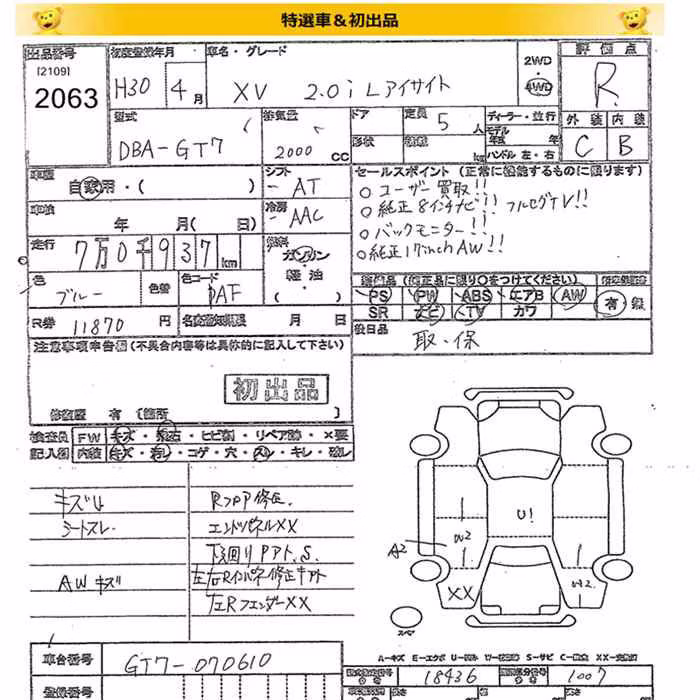 特選車&初出品
出品番号
[2109]
2063
初度登録年月
H30 4月
車名・グレード
XV 2.0i Lアイサイト
2WD
・
4WD
評価点
R
外装 内装
C B
型式
DBA-GT7
排気量
2000 CC
ドア
形状
定員
5人
積載
kg
ディーラー・並行
モデル
年式 年
ハンドル 左・右
車歴
自家用・( )
シフト
AT
車検
年 月( 日)
冷房
AAC
走行
7万0千937km
燃料
ガソリン
軽油
( )
色
ブルー
色替
色コード
PAF
R券 11870 円
名変登録期限 月 日
セールスポイント(正常に機能するものに限ります)
○ユーザー買取!!
○純正8インチナビ!! フルセグTV!!
○バックモニター!!
○純正17inchAW!!
装備品(純正品に限り○をつけてください)
PS PW ABS エアB AW 有・無
SR ナビ TV カワ
後日品
取・保
注意事項申告欄(不具合内容等は具体的に記入して下さい)
初出品
修復歴 有(箇所 )
検査員 FW キズ・飛石・ヒビ割・リペア跡・×要
記入欄 内装 キズ・汚レ・コゲ・穴・スレ・キレ・破レ
キズU
シートスレ
AWキズ
Rフロア修正
エンドパネルXX
下回りPアト、S
左右Rインパネ修正キアト
左RフェンダーXX
U!
A2
W2
XX
W2
スペア
A-キズ E-エクボ U-凹み W-波状態 S-サビ C-腐食 XX-交換済
車台番号
GT7-070610
型式指定番号
18436
類別区分番号
1007
登録番号